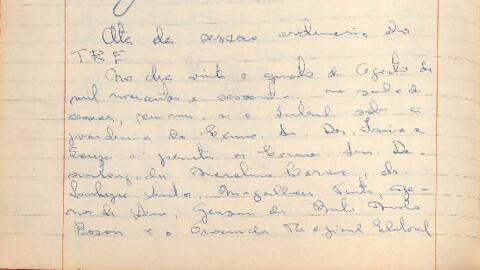 Ata da sessao ordinaria do
T R E
No dia vinte e quatro de Agosto de
mil novecentos e sessenta, na sala de
sessoes, reuniu-se o Tribunal sob a
presidencia do Exmo. Sr. Des. Faria e
Souza e presentes os Exmos. Srs. De-
sembarg. dr.
Santos, Magalhães Pinto,
Gerson de
Boson e o Procurador Regional Eleitoral